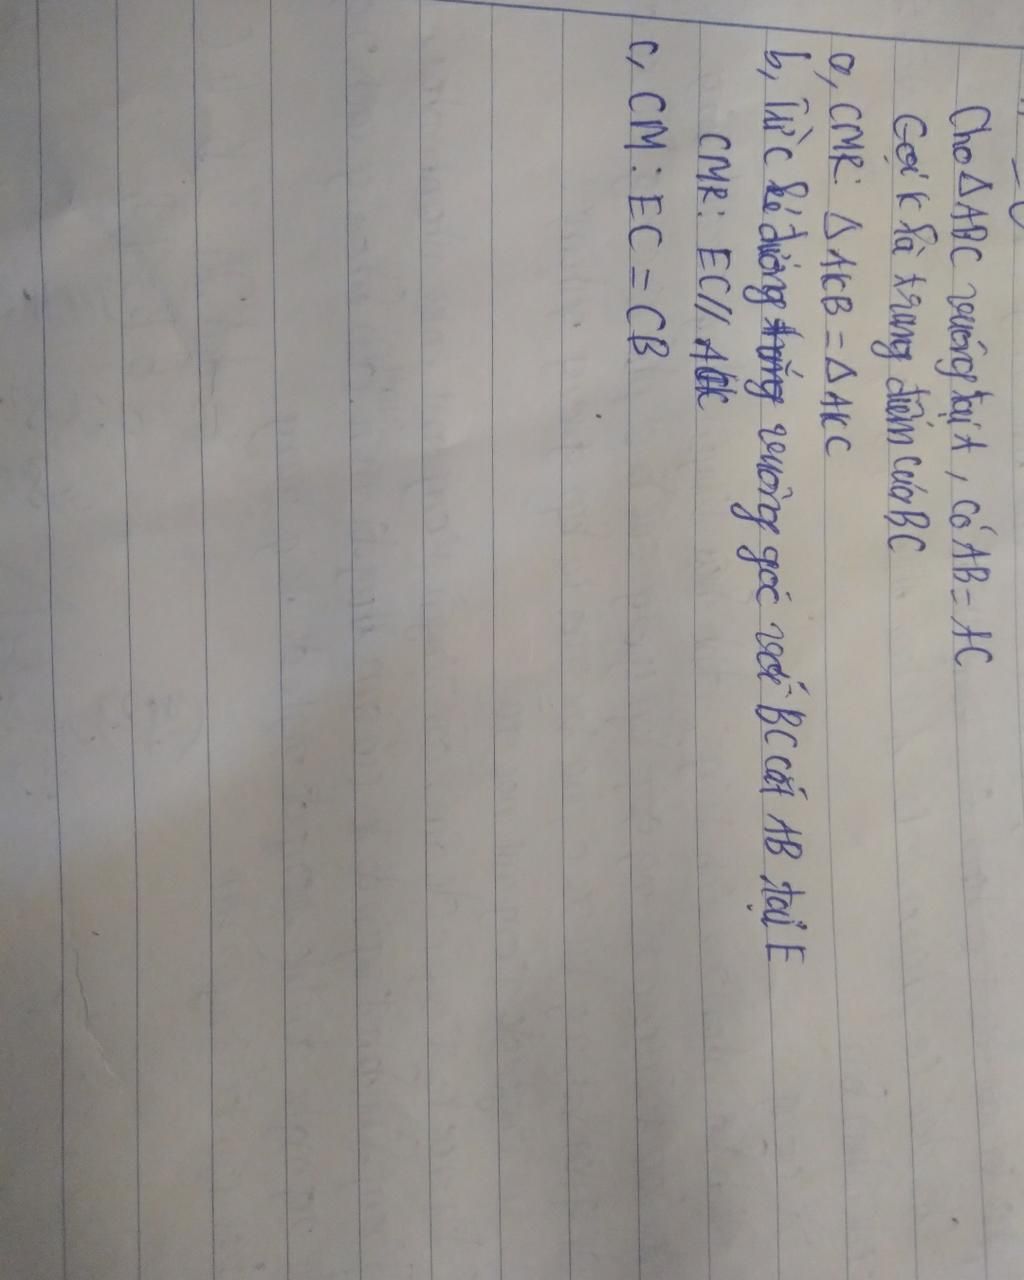 Cho Δ ABC vuông tại A, có AB = AC
Gọi K là trung điểm của BC
a, CMR: Δ AKB = Δ AKC
b, Từ C kẻ đường vuông góc với BC cắt AB tại E
CMR: EC // AK
c, CM: EC = CB